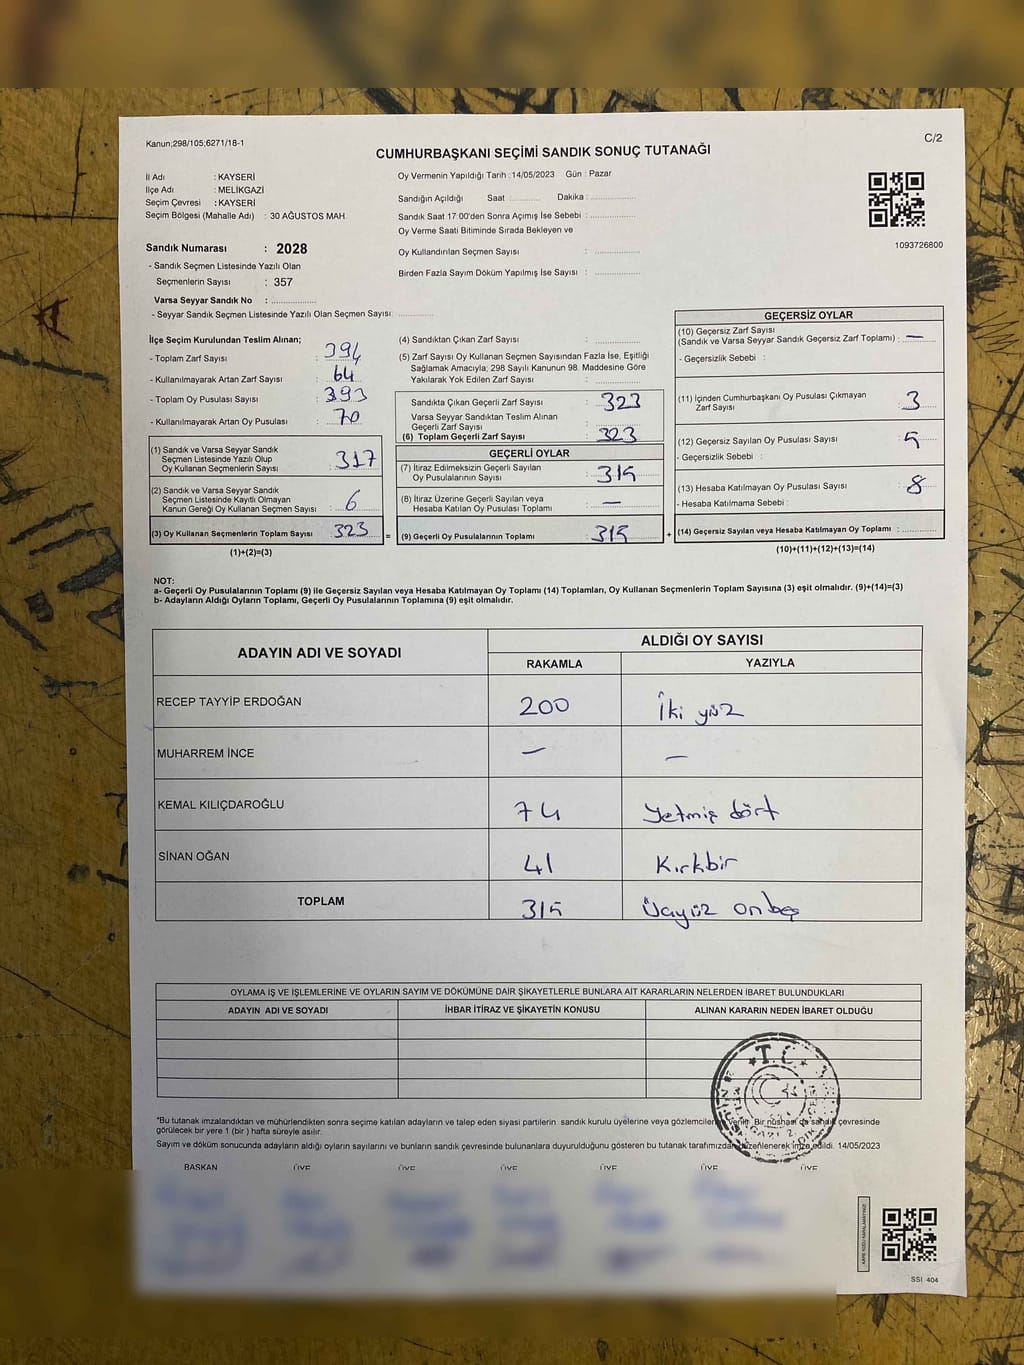 Kanun;298/105;6271/18-1
C/2
CUMHURBAŞKANI SEÇİMİ SANDIK SONUÇ TUTANAĞI
İl Adı : KAYSERİ
İlçe Adı : MELİKGAZİ
Seçim Çevresi : KAYSERİ
Seçim Bölgesi (Mahalle Adı) : 30 AĞUSTOS MAH.
Sandık Numarası : 2028
- Sandık Seçmen Listesinde Yazılı Olan
Seçmenlerin Sayısı : 357
Varsa Seyyar Sandık No : ..................
- Seyyar Sandık Seçmen Listesinde Yazılı Olan Seçmen Sayısı: ..............
Oy Vermenin Yapıldığı Tarih :14/05/2023 Gün : Pazar
Sandığın Açıldığı Saat ............ Dakika : ..................
Sandık Saat 17:00'den Sonra Açımış İse Sebebi : ..................
Oy Verme Saati Bitiminde Sırada Bekleyen ve
Oy Kullandırılan Seçmen Sayısı : ..................
Birden Fazla Sayım Döküm Yapılmış İse Sayısı : ..................
1093726800
İlçe Seçim Kurulundan Teslim Alınan;
- Toplam Zarf Sayısı : 394
- Kullanılmayarak Artan Zarf Sayısı : 64
- Toplam Oy Pusulası Sayısı : 393
- Kullanılmayarak Artan Oy Pusulası : 70
(1) Sandık ve Varsa Seyyar Sandık
Seçmen Listesinde Yazılı Olup
Oy Kullanan Seçmenlerin Sayısı : 317
(2) Sandık ve Varsa Seyyar Sandık
Seçmen Listesinde Kayıtlı Olmayan
Kanun Gereği Oy Kullanan Seçmen Sayısı : 6
(3) Oy Kullanan Seçmenlerin Toplam Sayısı : 323
(1)+(2)=(3)
(4) Sandıktan Çıkan Zarf Sayısı : ..................
(5) Zarf Sayısı Oy Kullanan Seçmen Sayısından Fazla İse, Eşitliği
Sağlamak Amacıyla; 298 Sayılı Kanunun 98. Maddesine Göre
Yakılarak Yok Edilen Zarf Sayısı : ..................
Sandıkta Çıkan Geçerli Zarf Sayısı : 323
Varsa Seyyar Sandıktan Teslim Alınan
Geçerli Zarf Sayısı : ..................
(6) Toplam Geçerli Zarf Sayısı : 323
GEÇERLİ OYLAR
(7) İtiraz Edilmeksizin Geçerli Sayılan
Oy Pusulalarının Sayısı : 315
(8) İtiraz Üzerine Geçerli Sayılan veya
Hesaba Katılan Oy Pusulası Toplamı : —
= (9) Geçerli Oy Pusulalarının Toplamı : 315 +
GEÇERSİZ OYLAR
(10) Geçersiz Zarf Sayısı
(Sandık ve Varsa Seyyar Sandık Geçersiz Zarf Toplamı) : —
- Geçersizlik Sebebi :
(11) İçinden Cumhurbaşkanı Oy Pusulası Çıkmayan
Zarf Sayısı : 3
(12) Geçersiz Sayılan Oy Pusulası Sayısı : 5
- Geçersizlik Sebebi :
(13) Hesaba Katılmayan Oy Pusulası Sayısı : 8
- Hesaba Katılmama Sebebi :
(14) Geçersiz Sayılan veya Hesaba Katılmayan Oy Toplamı : ............
(10)+(11)+(12)+(13)=(14)
NOT:
a- Geçerli Oy Pusulalarının Toplamı (9) ile Geçersiz Sayılan veya Hesaba Katılmayan Oy Toplamı (14) Toplamları, Oy Kullanan Seçmenlerin Toplam Sayısına (3) eşit olmalıdır. (9)+(14)=(3)
b- Adayların Aldığı Oyların Toplamı, Geçerli Oy Pusulalarının Toplamına (9) eşit olmalıdır.
ADAYIN ADI VE SOYADI ALDIĞI OY SAYISI
RAKAMLA YAZIYLA
RECEP TAYYİP ERDOĞAN 200 İki yüz
MUHARREM İNCE — —
KEMAL KILIÇDAROĞLU 74 Yetmiş dört
SİNAN OĞAN 41 Kırkbir
TOPLAM 315 Üçyüz onbeş
OYLAMA İŞ VE İŞLEMLERİNE VE OYLARIN SAYIM VE DÖKÜMÜNE DAİR ŞİKAYETLERLE BUNLARA AİT KARARLARIN NELERDEN İBARET BULUNDUKLARI
ADAYIN ADI VE SOYADI İHBAR İTİRAZ VE ŞİKAYETİN KONUSU ALINAN KARARIN NEDEN İBARET OLDUĞU
T.C.
*Bu tutanak imzalandıktan ve mühürlendikten sonra seçime katılan adayların ve talep eden siyasi partilerin sandık kurulu üyelerine veya gözlemcilere verilir. Bir nüshası da sandık çevresinde
görülecek bir yere 1 (bir ) hafta süreyle asılır.
Sayım ve döküm sonucunda adayların aldığı oyların sayılarını ve bunların sandık çevresinde bulunanlara duyurulduğunu gösteren bu tutanak tarafımızdan düzenlenerek imza edildi. 14/05/2023
BAŞKAN ÜYE ÜYE ÜYE ÜYE ÜYE ÜYE
SSI 404